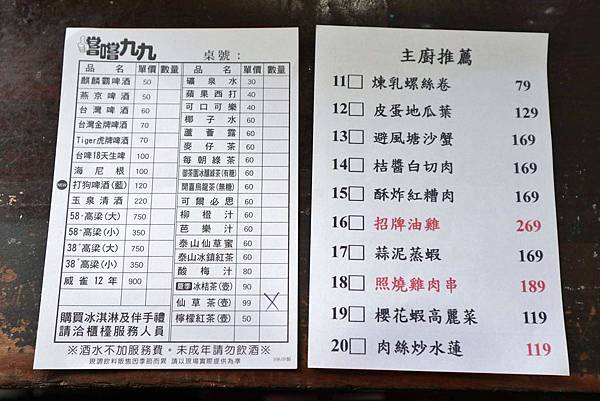 嚐嚐九九 桌號：
品名 單價 數量
麒麟霸啤酒 50
燕京啤酒 50
台灣啤酒 60
台灣金牌啤酒 70
Tiger虎牌啤酒 70
台啤18天生啤 100
海尼根 100
打狗啤酒(藍) 120
玉泉清酒 220
58°高粱(大) 750
58°高粱(小) 350
38°高粱(大) 750
38°高粱(小) 350
威雀12年 900
購買冰淇淋及伴手禮
請洽櫃檯服務人員
品名 單價 數量
礦泉水 30
蘋果西打 40
可口可樂 40
椰子水 60
蘆薈露 60
麥仔茶 60
每朝綠茶 60
御茶園冰釀綠茶(有糖) 60
開喜烏龍茶(無糖) 60
可爾必思 60
柳橙汁 60
芭樂汁 60
泰山仙草蜜 60
泰山冰鎮紅茶 60
酸梅汁 80
夏季 冰桔茶(壺) 90
仙草茶(壺) 99
檸檬紅茶(壺) 50
※酒水不加服務費。未成年請勿飲酒※
現調飲料販售因季節而異 請以現場實際提供為準
主廚推薦
11 煉乳螺絲卷 79
12 皮蛋地瓜葉 129
13 避風塘沙蟹 169
14 桔醬白切肉 169
15 酥炸紅糟肉 169
16 招牌油雞 269
17 蒜泥蒸蝦 169
18 照燒雞肉串 189
19 櫻花蝦高麗菜 119
20 肉絲炒水蓮 119